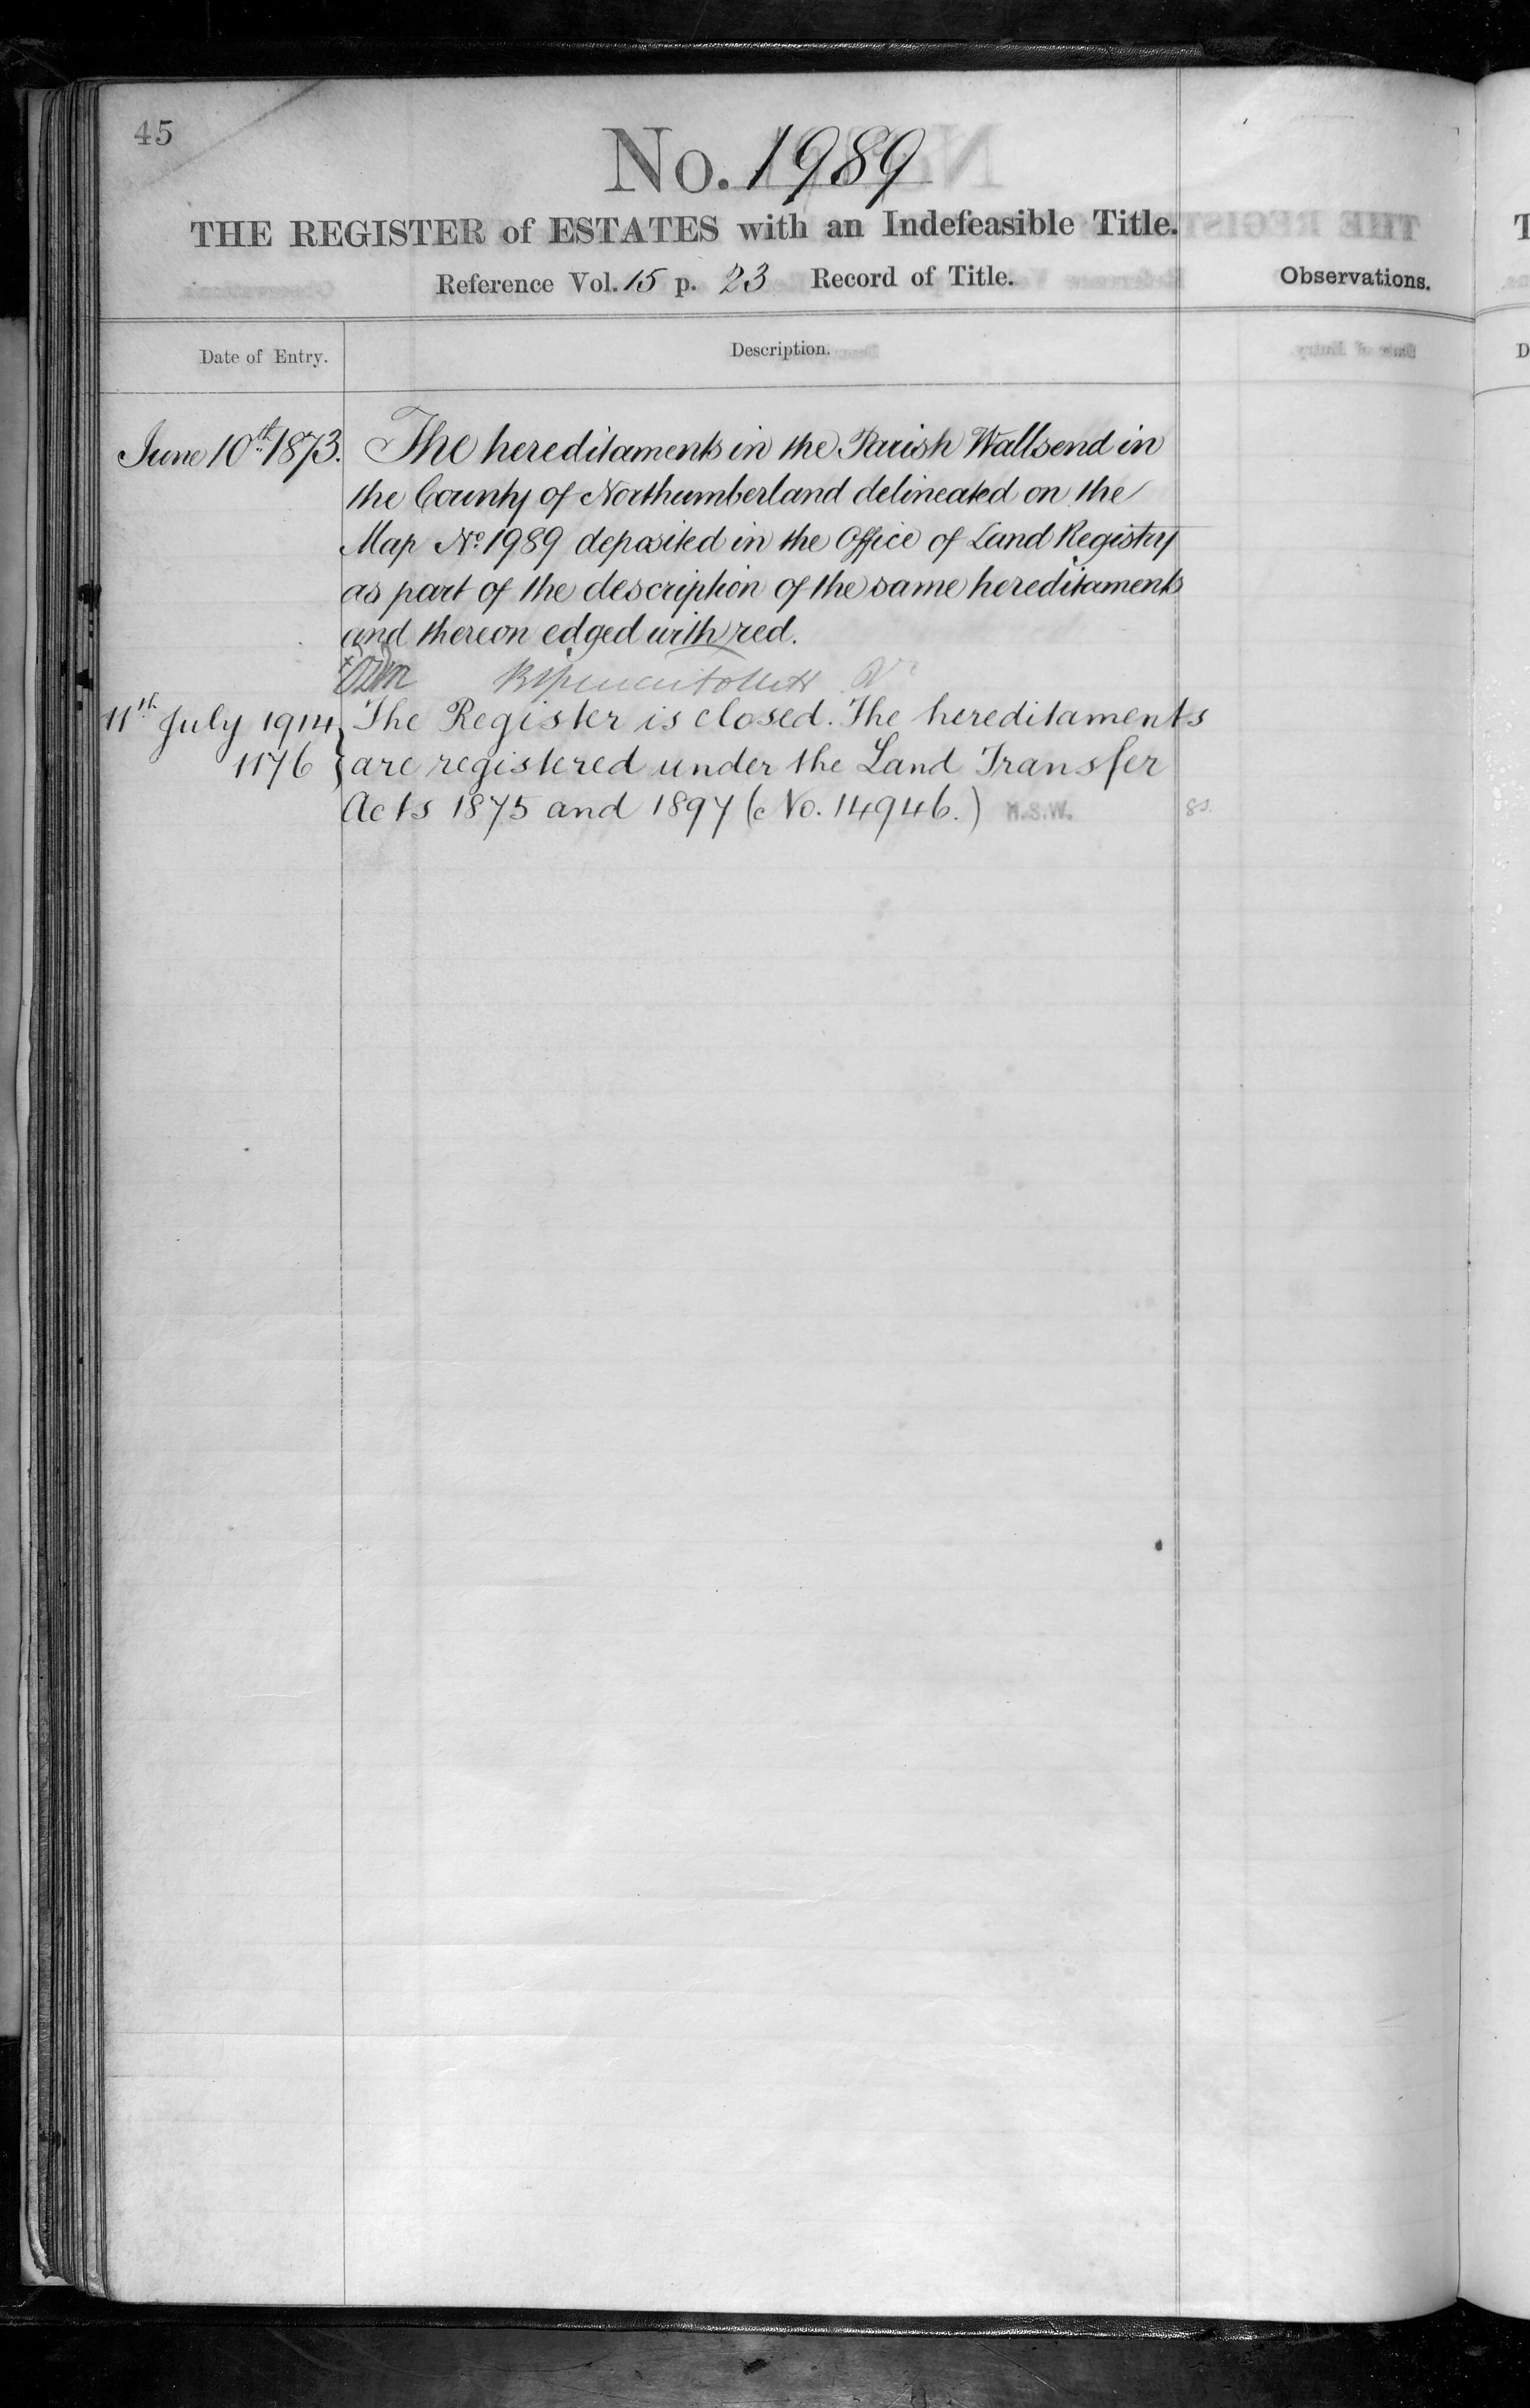 45
No. 1989
THE REGISTER of ESTATES with an Indefeasible Title.
Reference Vol. 15 p. 23 Record of Title.
Observations.
Date of Entry.
Description.
June 10th 1873. The hereditaments in the Parish Wallsend in
the County of Northumberland delineated on the
Map No. 1989 deposited in the Office of Land Registry
as part of the description of the same hereditaments
and thereon edged with red.
11th July 1914 The Register is closed. The hereditaments
1176 are registered under the Land Transfer
Acts 1875 and 1897 (No. 14946.) H.S.W.